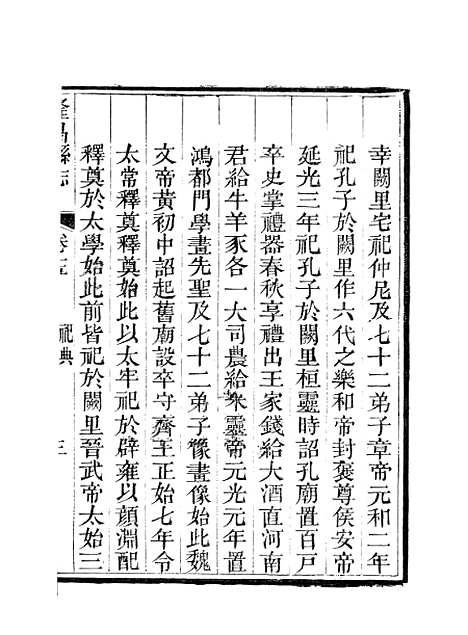 幸闕里宅祀仲尼及七十二弟子章帝元和二年
祀孔子於闕里作六代之樂和帝封褒尊侯安帝
延光三年祀孔子於闕里桓靈時詔孔廟置百戸
卒史掌禮器春秋享禮出王家錢給大酒直河南
君給牛羊豕各一大司農給米靈帝元光元年置
鴻都門學畫先聖及七十二弟子像畫像始此魏
文帝黃初中詔起舊廟設卒守齊王正始七年令
太常釋奠釋奠始此以太牢祀於辟雍以顏淵配
釋奠於太學始此前皆祀於闕里晉武帝太始三
隆昌縣志 卷三 祀典 三